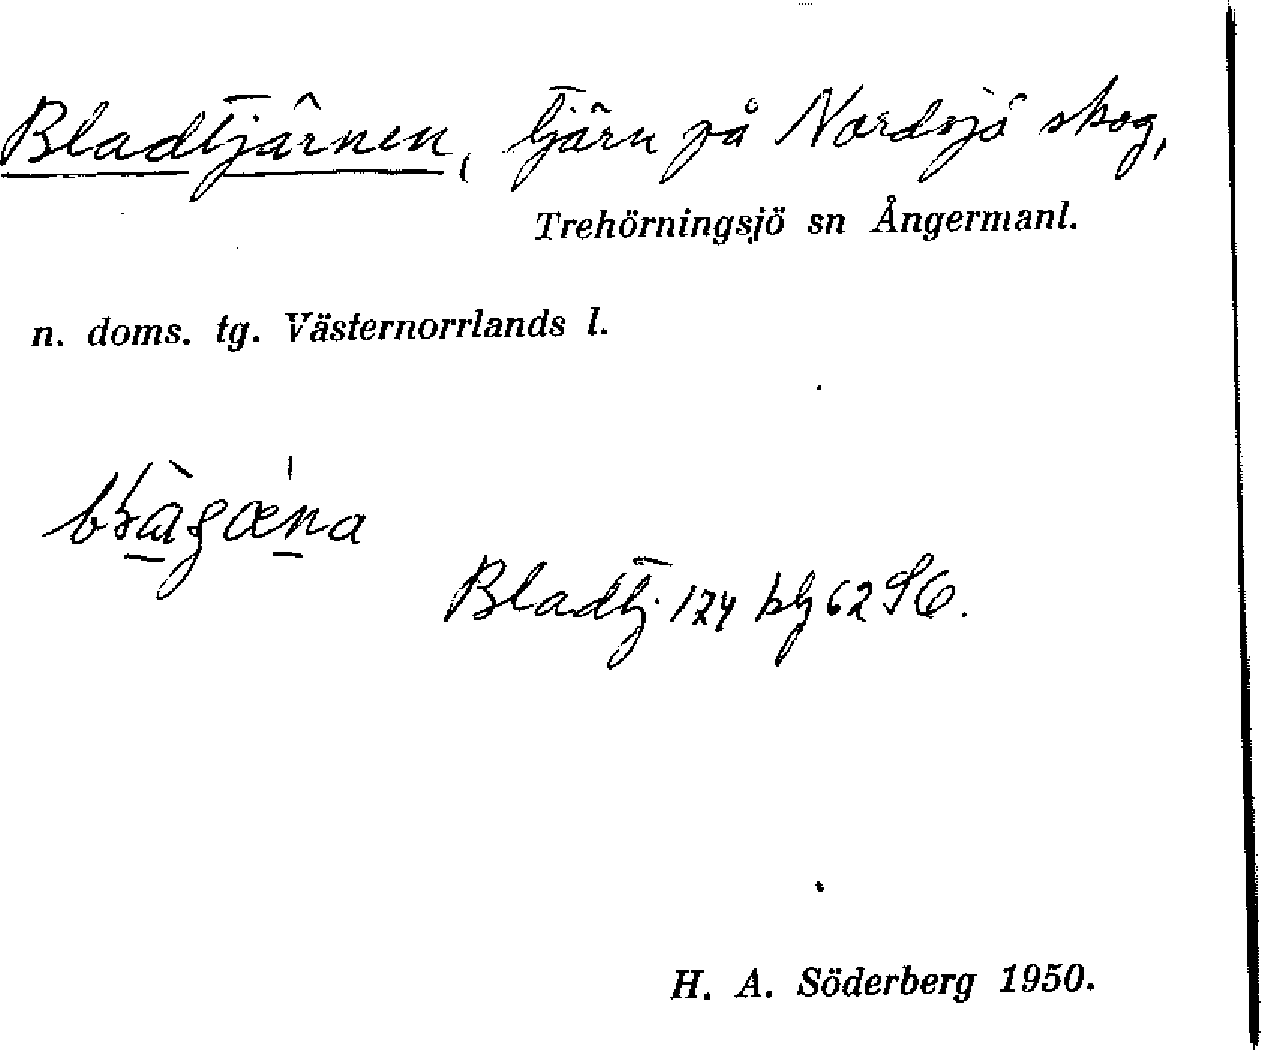 Bladtjärnen, tjärn på Nordsjö skog,
Trehörningsjö sn Ångermanl.
n. doms. tg. Västernorrlands l.
Bladtj. 174 bf 62 S6.
H. A. Söderberg 1950.